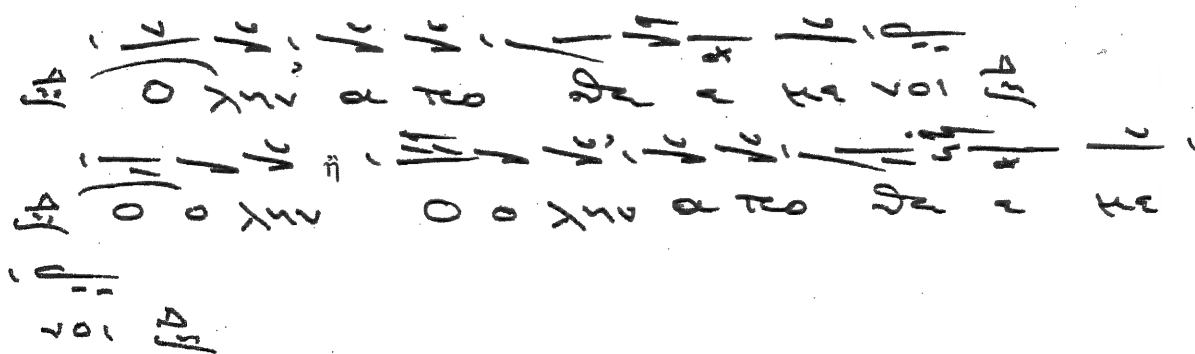 Ο λην α πο θε ε με νοι
Ο ο λην ἢ Ο ο λην α πο θε ε με
νοι